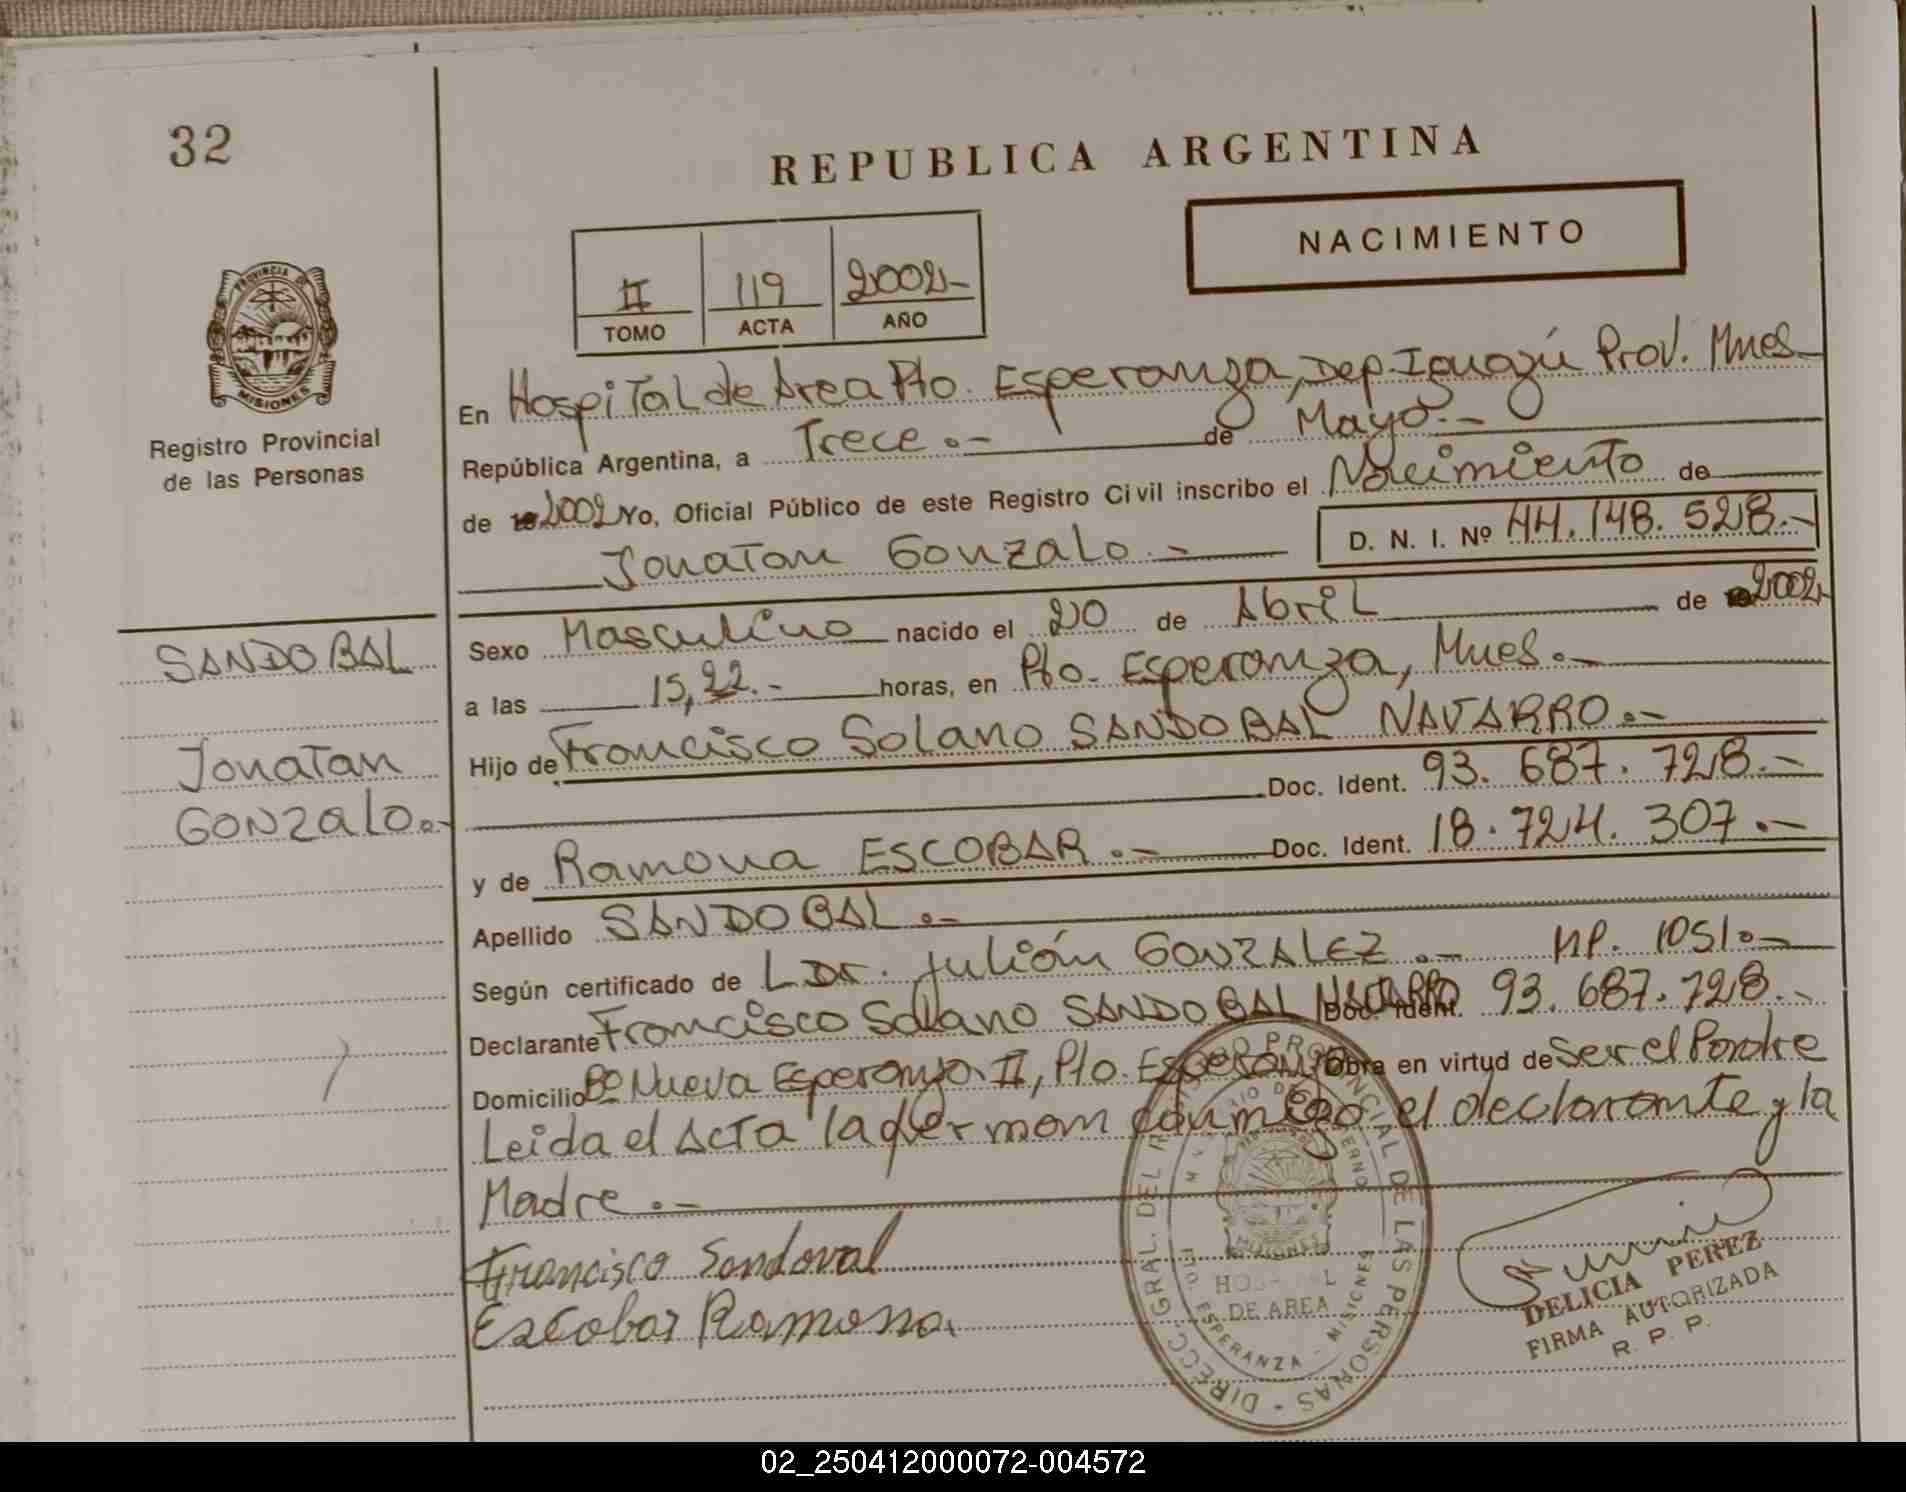 32
REPUBLICA ARGENTINA
NACIMIENTO
II 119 2002-
TOMO ACTA AÑO
PROVINCIA DE
MISIONES
Registro Provincial
de las Personas
En Hospital de Area Pto. Esperanza, Dep. Iguazú Prov. Mnes-
República Argentina, a Trece.- de Mayo.-
de 2002 Yo, Oficial Público de este Registro Civil inscribo el Nacimiento de
Jonatan Gonzalo.- D. N. I. Nº 44.148.528.-
SANDOBAL
Jonatan
Gonzalo.-
Sexo Masculino nacido el 20 de Abril de 2002
a las 15,22.- horas, en Pto. Esperanza, Mnes.-
Hijo de Francisco Solano SANDOBAL NAVARRO.-
Doc. Ident. 93.687.728.-
y de Ramona ESCOBAR.- Doc. Ident. 18.724.307.-
Apellido SANDOBAL.-
Según certificado de Dr. Julián GONZALEZ.- MP. 1051.-
Declarante Francisco Solano SANDOBAL NAVARRO Doc. Ident. 93.687.728.-
Domicilio Bº Nueva Esperanza II, Pto. Esperanza Obra en virtud de Ser el Padre
Leida el Acta la firman conmigo el declarante y la
Madre.-
Francisco Sandoval
Escobar Ramona.
DIRECC. GRAL. DEL REGISTRO PROVINCIAL DE LAS PERSONAS
MISIONES
HOSPITAL
DE AREA
ESPERANZA - MISIONES
DELICIA PEREZ
FIRMA AUTORIZADA
R. P. P.
02_250412000072-004572